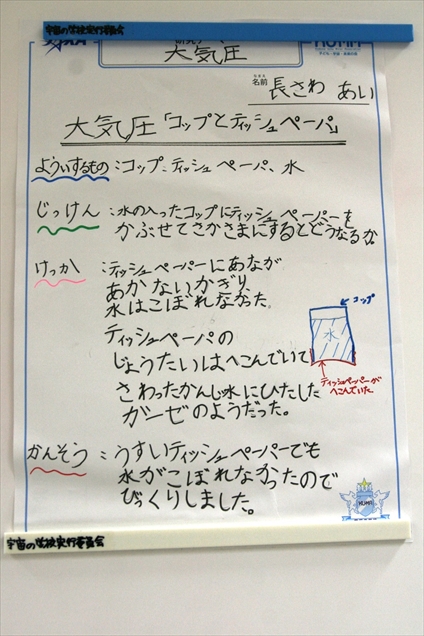 宇宙の学校実行委員会
KUMA
大気圧
名前 長さわ あい
大気圧「コップとティッシュペーパ」
よういするもの:コップ、ティッシュペーパ、水
じっけん:水の入ったコップにティッシュペーパーを
かぶせてさかさまにするとどうなるか
けっか:ティッシュペーパーにあなが
あかないかぎり
水はこぼれなかった。
ティッシュペーパの
じょうたいはへこんでいて
さわったかんじ水にひたした
ガーゼのようだった。
コップ
水
ティッシュペーパーが
へこんでいた
かんそう:うすいティッシュペーパーでも
水がこぼれなかったので
びっくりしました。
KUMA
宇宙の学校実行委員会